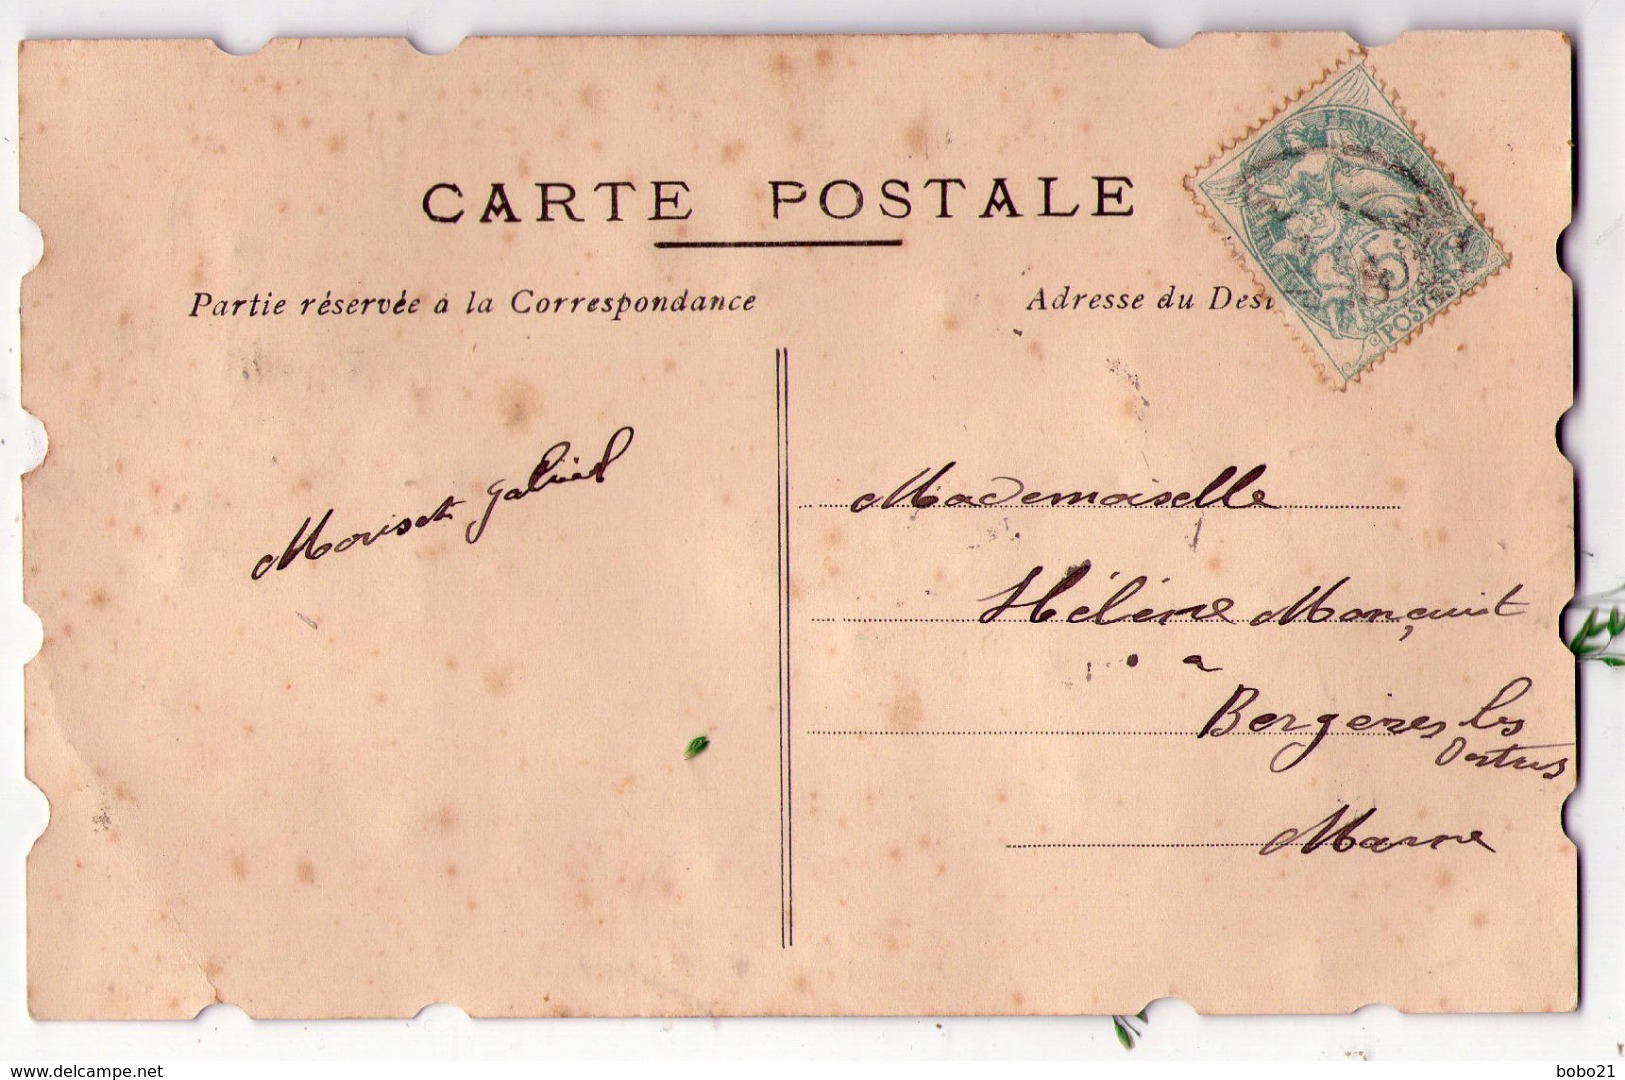 CARTE POSTALE
Partie réservée à la Correspondance
Adresse du Dest
FRANÇAISE
5
POSTES
Moriset gabriel
Mademoiselle
Hélène Monçuit
a
Bergères les
Vertus
Marne
www.delcampe.net
bobo21